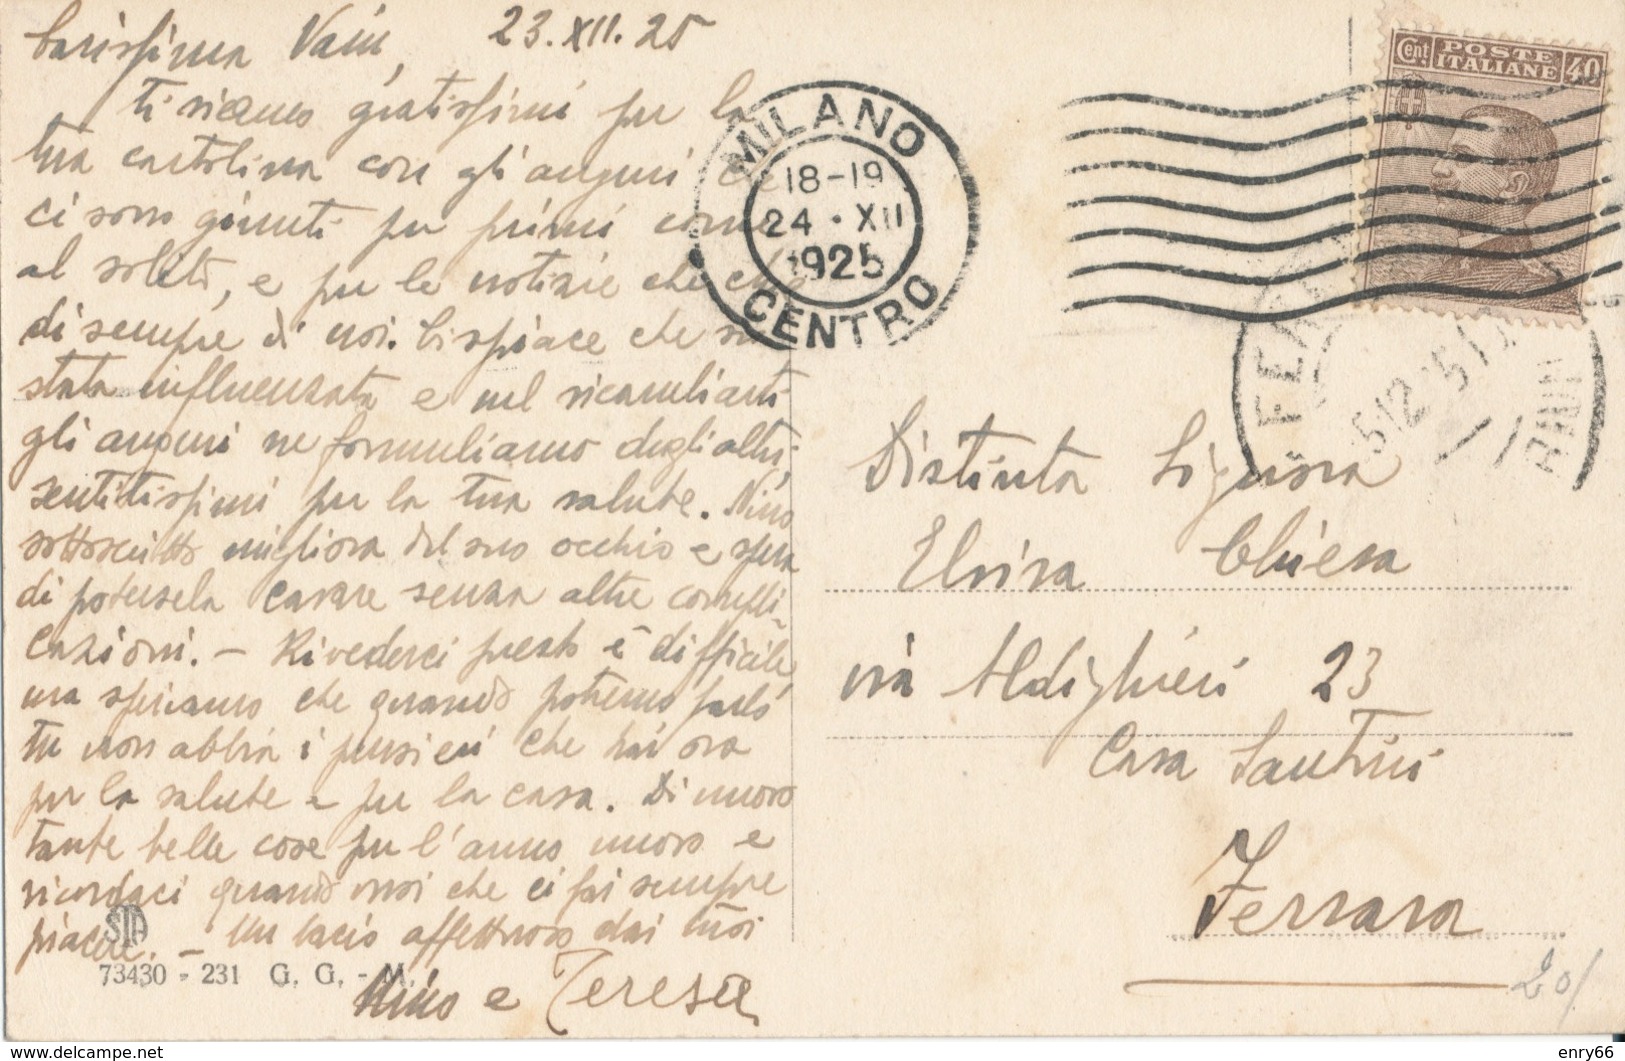 Carissima Vain, 23.XII.25
ti siamo gratissimi per la
tua cartolina con gli auguri che
ci sono giunti per primi come
al solito, e per le notizie che chie
di sempre di noi. Ci spiace che sii
stata influenzata e nel ricambiarti
gli auguri ne formuliamo degli altri,
sentitissimi per la tua salute. Nino
sottoscritto migliora del suo occhio e spera
di potersela cavare senza altre compli-
cazioni. - Rivederci presto è difficile,
ma speriamo che quando potremo farlo
tu non abbia i pensieri che hai ora
per la salute e per la casa. Di nuovo
tante belle cose per l'anno nuovo e
ricordaci quando vuoi che ci fai sempre
piacere. - Un bacio affettuoso dai tuoi
Nino e Teresa
STA
73430 - 231 G. G. - M.
MILANO
18-19
24 · XII
1925
CENTRO
Cent POSTE ITALIANE 40
Distinta Signora
Elvira Chiesa
via Aldighieri 23
Casa Santini
Ferrara
20/
enry66